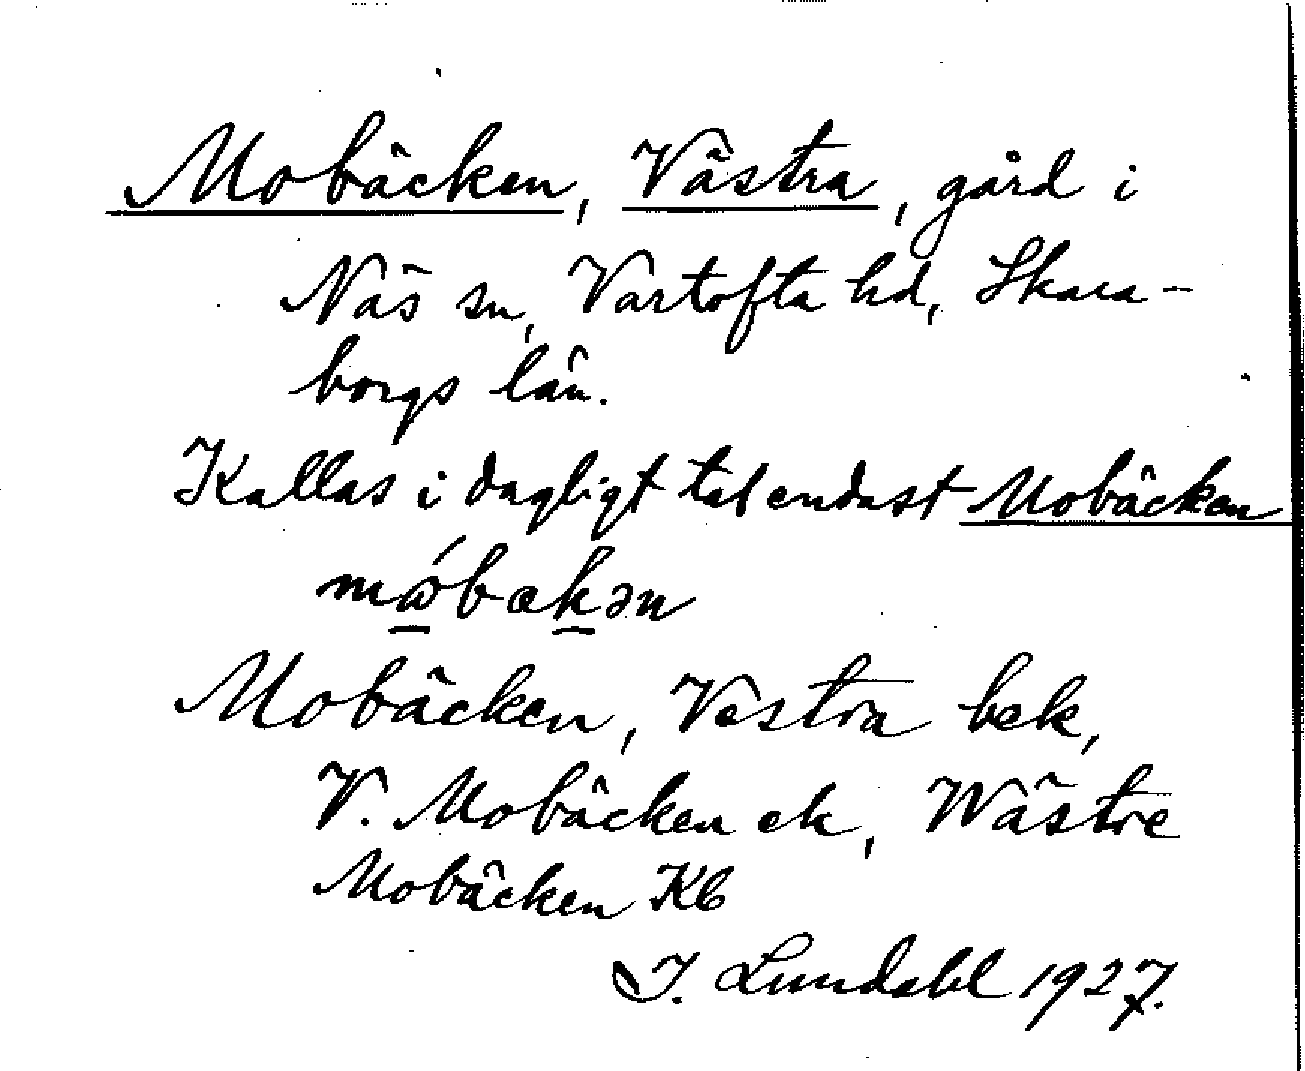 Mobäcken, Västra, gård i
Näs sn, Vartofta hd, Skara-
borgs län.
Kallas i dagligt tal endast Mobäcken
mώbækən
Mobäcken, Vestra bek,
V. Mobäcken ek, Wästre
Mobäcken Kb
I. Lundahl 1927.